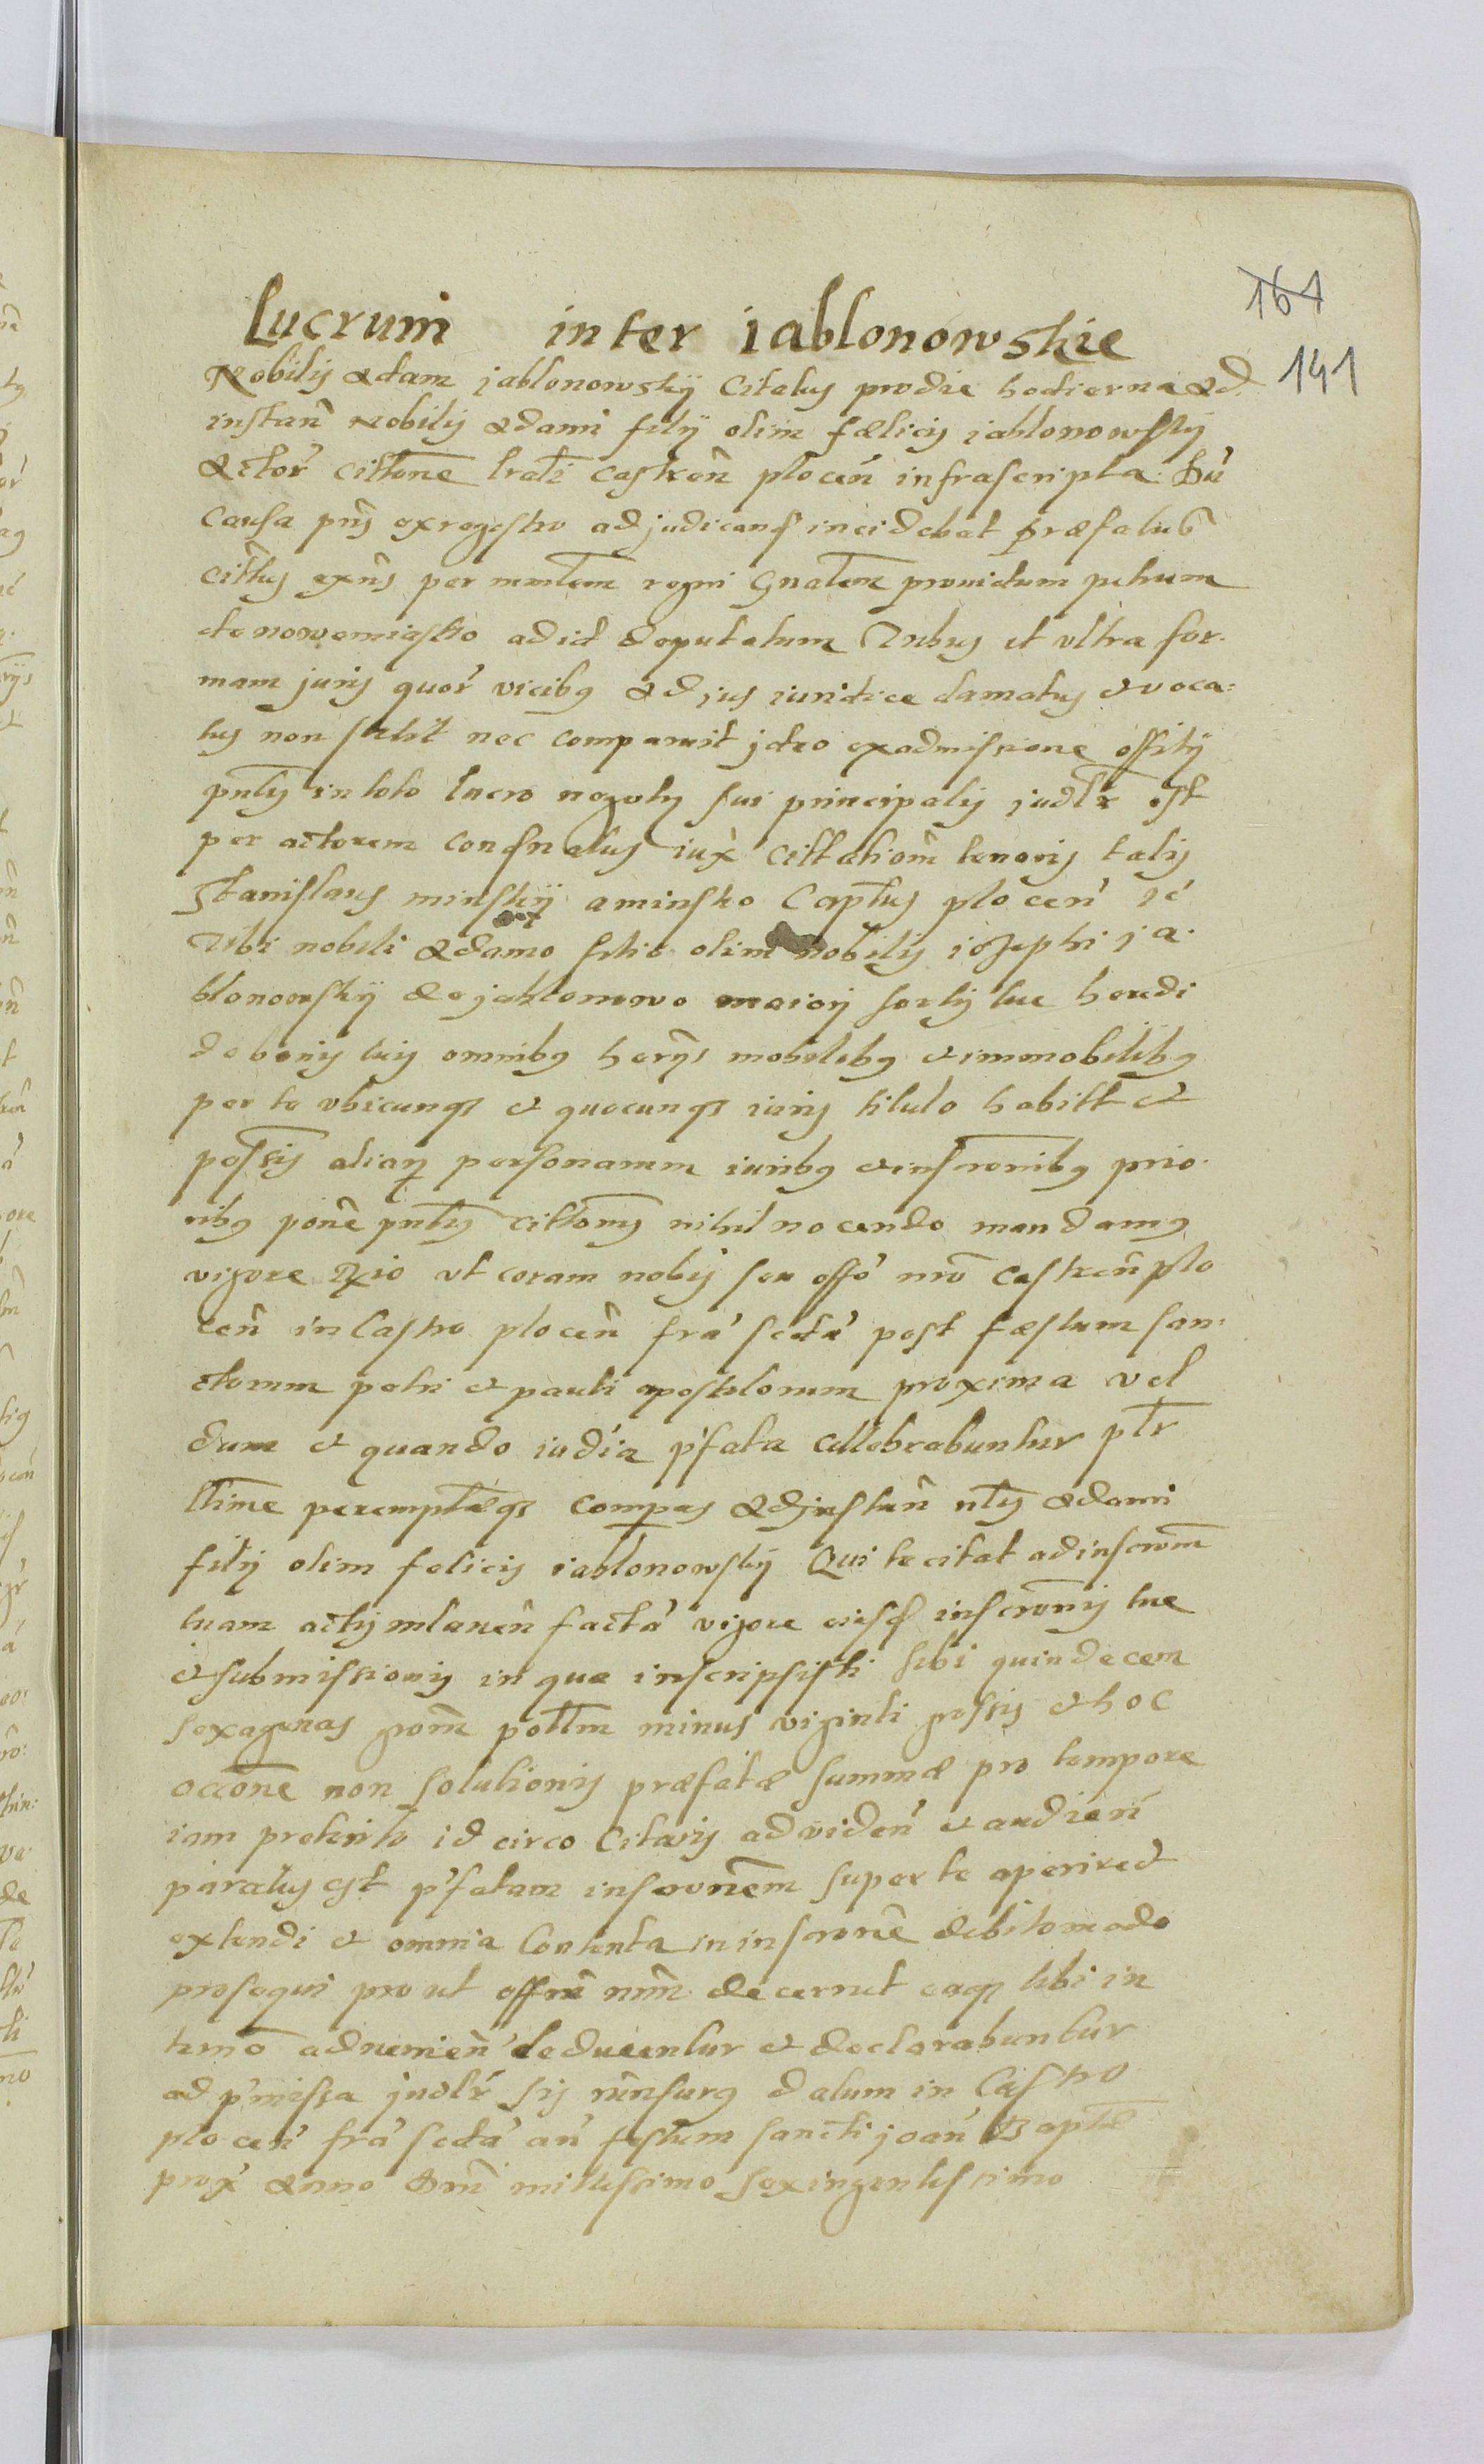 161
141
Lucrum inter iablonowskie
Nobilis Adam jablonowskÿ Citatus prodie hodierna Ad
instan̄ Nobilis Adami filÿ olim fælicis iablonowskÿ
Actor̄ cittone lrali castren̄ plocen̄ infrascripta: Dū
Causa pn̄s exregestro adjudicand incidebat præfatus
cittus exn̄s per mntem regni Gnalem prouidum petrum
de nowemiasto adid deputatum Tribus et vltra for-
mam juris quor̄ vicibus Ad jus iuridice clamatus et voca:
tus non stetit nec comparuit jdeo exadmissione offitÿ
pntis in toto lucro negoty sui principalis judlr est
per actorem condnatus iux̄ cittationē tenoris talis
Stanislaus minskÿ aminsko Captus plocen̄ ić
Tibi nobili Adamo filio olim nobilis iozephi ja-
blonowskÿ de jablonowo maiori sortis tue heredi
de bonis tuis omnibus herijs mobilibus et immobilibus
per te vbicunq et quocunq iuris titulo habitt et
possis aliarum personarum iuribus et inscronibus prio-
ribus pone pntis cittonis nihil nocendo mandamus
vigore Rxio vt coram nobis seu offo nro castren̄ plo
cen̄ in Castro plocen̄ fra secda post fæstum san:
ctorum petri et pauli apostolorum proxima vel
dum et quando iudia pfata cellebrabuntur ptr
ltime peremptæq compas Ad instan̄ nlis Adami
filÿ olim felicis iablonowskÿ Qui te citat adinscrom
tuam actis mlauen̄ facta vigore eiusd inscronis tue
et submissionis in qua inscripsisti sibi quindecem
sexagenas grom poltm minus viginti grossis et hoc
occone non solutionis præfatæ summæ pro tempore
iam preterito id circo Citaris ad viden̄ et audien̄
paratus est pfatam inscronem super te aperire et
extendi et omnia Contenta in inscrone debito modo
prosequi pro ut offm nrm decernet eaq tibi in
termo aduenien̄ deducentur et declarabuntur
ad pmissa judlr sis rūnsurus datum in Castro
plocen̄ fra secda an̄ festum sancti joan̄ Bapte
prox̄ Anno Dm̄ millessimo sexingentessimo